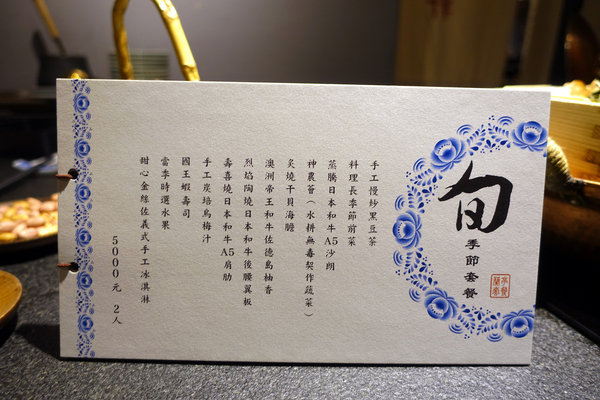 旬
季節套餐
手工慢炒黑豆茶
料理長季節前菜
蒸騰日本和牛A5沙朗
神農薈(水耕無毒契作蔬菜)
炙燒干貝海膽
澳洲帝王和牛佐德島柚香
烈焰陶燒日本和牛後腰翼板
壽喜燒日本和牛A5肩肋
手工炭培烏梅汁
國王蝦壽司
當季時選水果
甜心金絲佐義式手工冰淇淋
5000元 2人